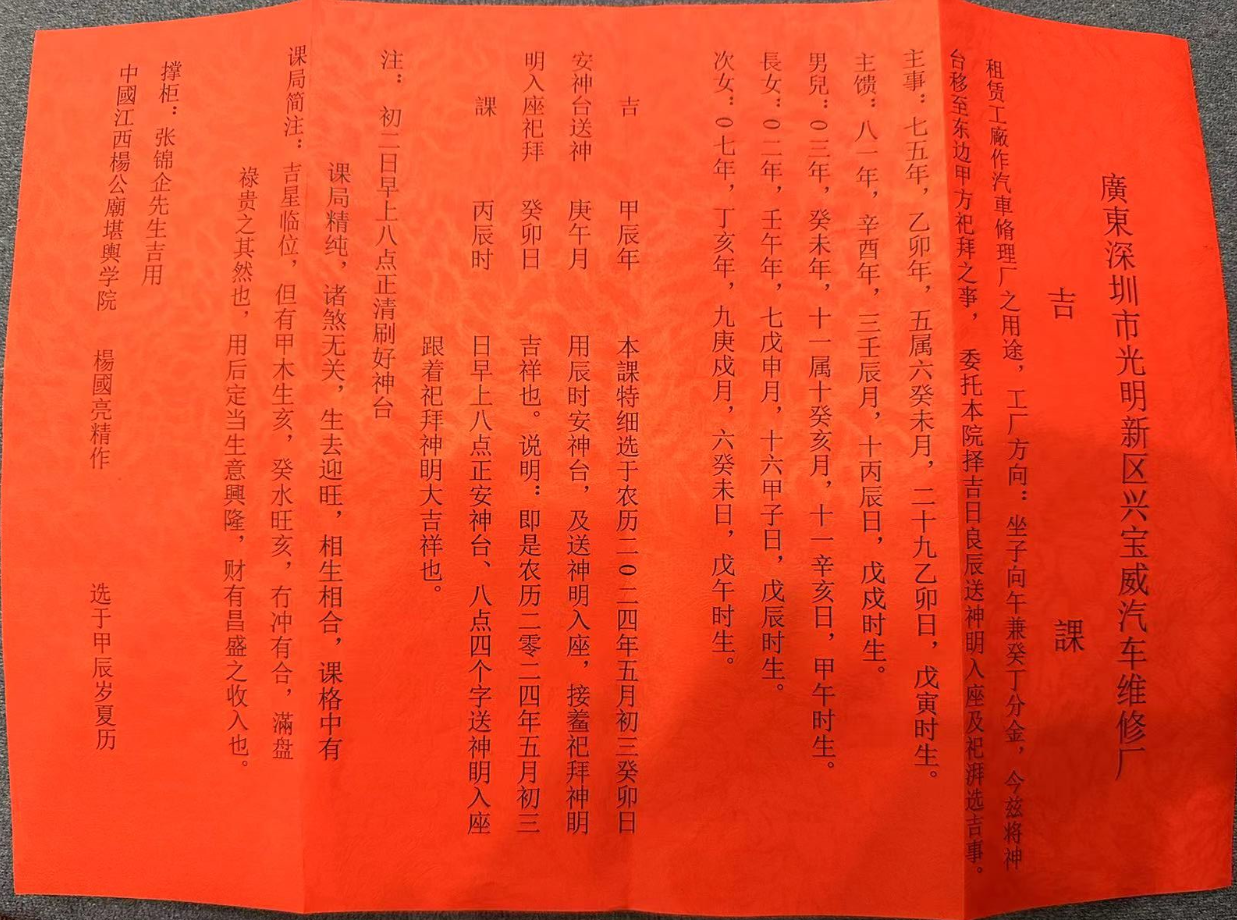 廣東深圳市光明新区兴宝威汽车维修厂
吉 課
租赁工廠作汽車脩理厂之用途，工厂方向：坐子向午兼癸丁分金，今兹将神
台移至东边甲方祀拜之事，委托本院择吉日良辰送神明入座及祀湃选吉事。
主事：七五年，乙卯年，五属六癸未月，二十九乙卯日，戊寅时生。
主馈：八一年，辛酉年，三壬辰月，十丙辰日，戊戍时生。
男兒：0三年，癸未年，十一属十癸亥月，十一辛亥日，甲午时生。
長女：0二年，壬午年，七戊申月，十六甲子日，戊辰时生。
次女：0七年，丁亥年，九庚戌月，六癸未日，戊午时生。
吉 甲辰年 本課特细选于农历二0二四年五月初三癸卯日
安神台送神 庚午月 用辰时安神台，及送神明入座，接着祀拜神明
明入座祀拜 癸卯日 吉祥也。说明：即是农历二零二四年五月初三
課 丙辰时 日早上八点正安神台、八点四个字送神明入座
跟着祀拜神明大吉祥也。
注： 初二日早上八点正清刷好神台
课局精纯，诸煞无关，生去迎旺，相生相合，课格中有
课局简注：吉星临位，但有甲木生亥，癸水旺亥，冇冲有合，滿盘
祿贵之其然也，用后定当生意興隆，财有昌盛之收入也。
撑柜：张锦企先生吉用
中國江西楊公廟堪輿学院 楊國亮精作 选于甲辰岁夏历